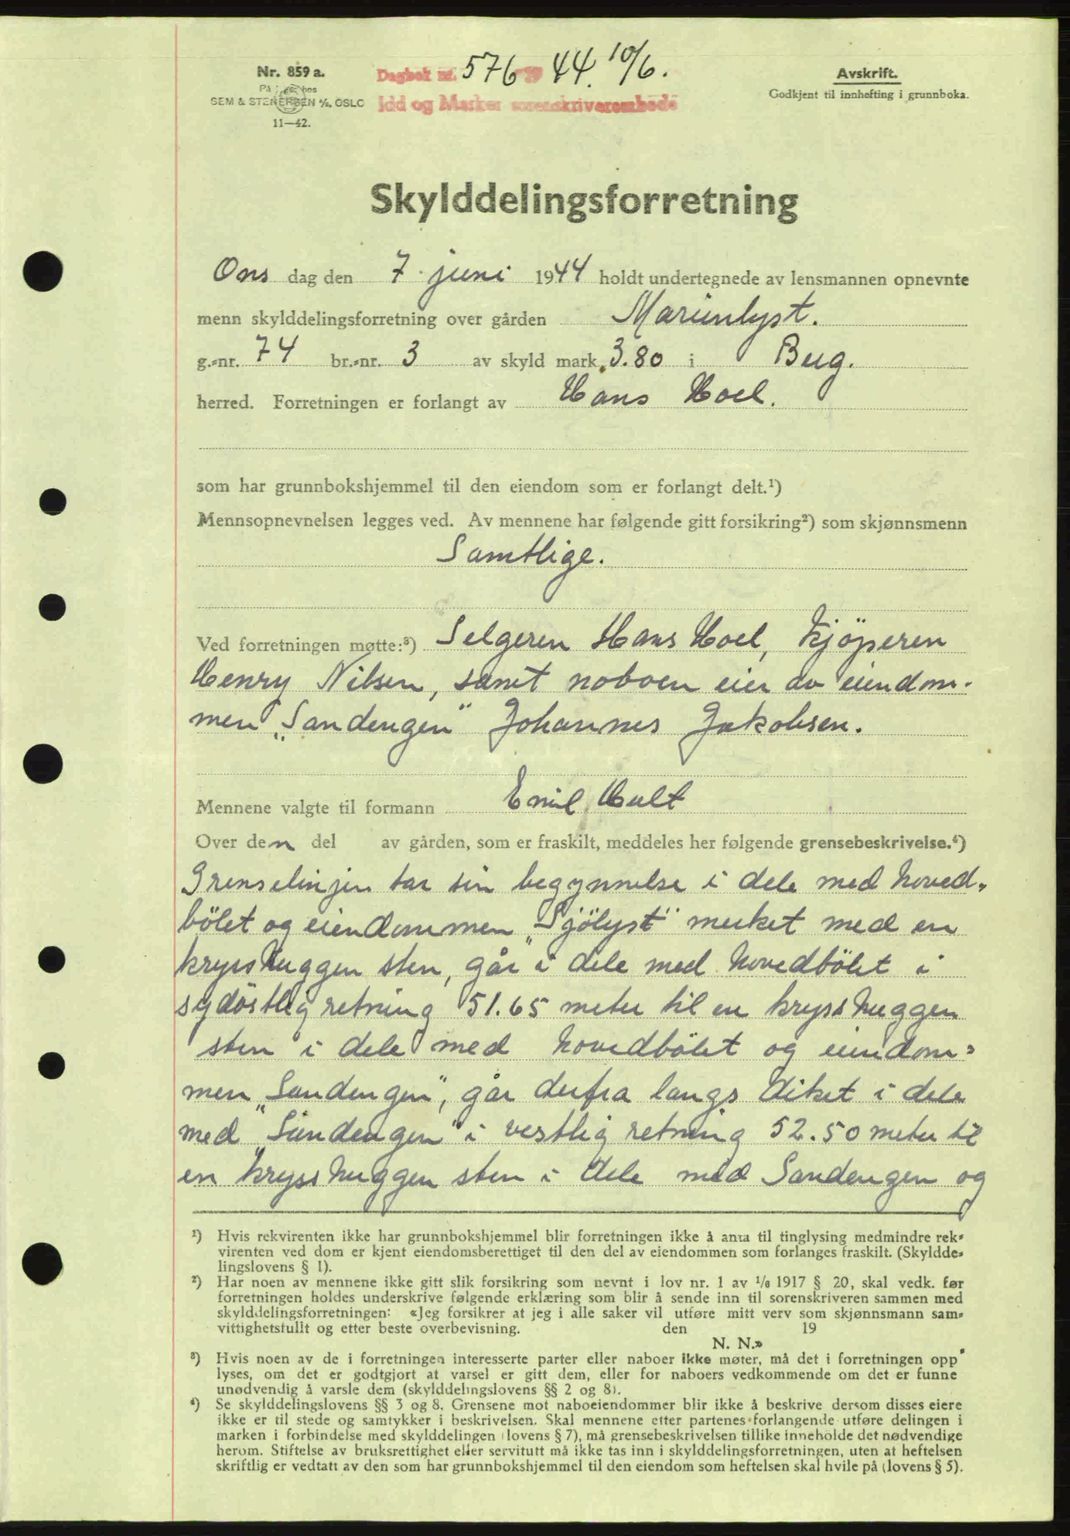 Nr. 859 a.
SEM & STENERSEN A/S, OSLO
11—42.
Dagbok nr. 576 19 44. 10/6.
Idd og Marker sorenskriverembede
Avskrift.
Godkjent til innhefting i grunnboka.
Skylddelingsforretning
Ons dag den 7 juni 1944 holdt undertegnede av lensmannen opnevnte
menn skylddelingsforretning over gården Marienlyst.
g.-nr. 74 br.-nr. 3 av skyld mark 3.80 i Berg.
herred. Forretningen er forlangt av Hans Hoel.
som har grunnbokshjemmel til den eiendom som er forlangt delt.¹)
Mennsopnevnelsen legges ved. Av mennene har følgende gitt forsikring²) som skjønnsmenn
Samtlige.
Ved forretningen møtte:³) Selgeren Hans Hoel, kjöperen
Henry Nilsen, samt naboen eier av eiendom-
men „Sandengen" Johannes Jakobsen.
Mennene valgte til formann Emil Hult
Over den del av gården, som er fraskilt, meddeles her følgende grensebeskrivelse.⁴)
Grenselinjen tar sin begynnelse i dele med hoved-
bölet og eiendommen „Sjölyst" merket med en
krysshuggen sten, går i dele med hovedbölet i
sydöstlig retning 51.65 meter til en krysshuggen
sten i dele med hovedbölet og eiendom-
men „Sandengen", går derfra langs diket i dele
med „Sandengen" i vestlig retning 52.50 meter til
en krysshuggen sten i dele med Sandengen og
¹) Hvis rekvirenten ikke har grunnbokshjemmel blir forretningen ikke å anta til tinglysing medmindre rek-
virenten ved dom er kjent eiendomsberettiget til den del av eiendommen som forlanges fraskilt. (Skyldde-
lingslovens § 1).
²) Har noen av mennene ikke gitt slik forsikring som nevnt i lov nr. 1 av 1/6 1917 § 20, skal vedk. før
forretningen holdes underskrive følgende erklæring som blir å sende inn til sorenskriveren sammen med
skylddelingsforretningen: «Jeg forsikrer at jeg i alle saker vil utføre mitt verv som skjønnsmann sam-
vittighetsfullt og etter beste overbevisning. den 19
N. N.»
³) Hvis noen av de i forretningen interesserte parter eller naboer ikke møter, må det i forretningen opp
lyses, om det er godtgjort at varsel er gitt dem, eller for naboers vedkommende om det er funne
unødvendig å varsle dem (skylddelingslovens §§ 2 og 8).
⁴) Se skylddelingslovens §§ 3 og 8. Grensene mot naboeiendommer blir ikke å beskrive dersom disses eiere
ikke er til stede og samtykker i beskrivelsen. Skal mennene etter partenes forlangende utføre delingen i
marken i forbindelse med skylddelingen (lovens § 7), må grensebeskrivelsen tillike inneholde det nødvendige
herom. Stiftelse av bruksrettighet eller servitutt må ikke tas inn i skylddelingsforretningen, uten at heftelsen
skriftlig er vedtatt av den som har grunnbokshjemmel til den eiendom som heftelsen skal hvile på (lovens § 5).